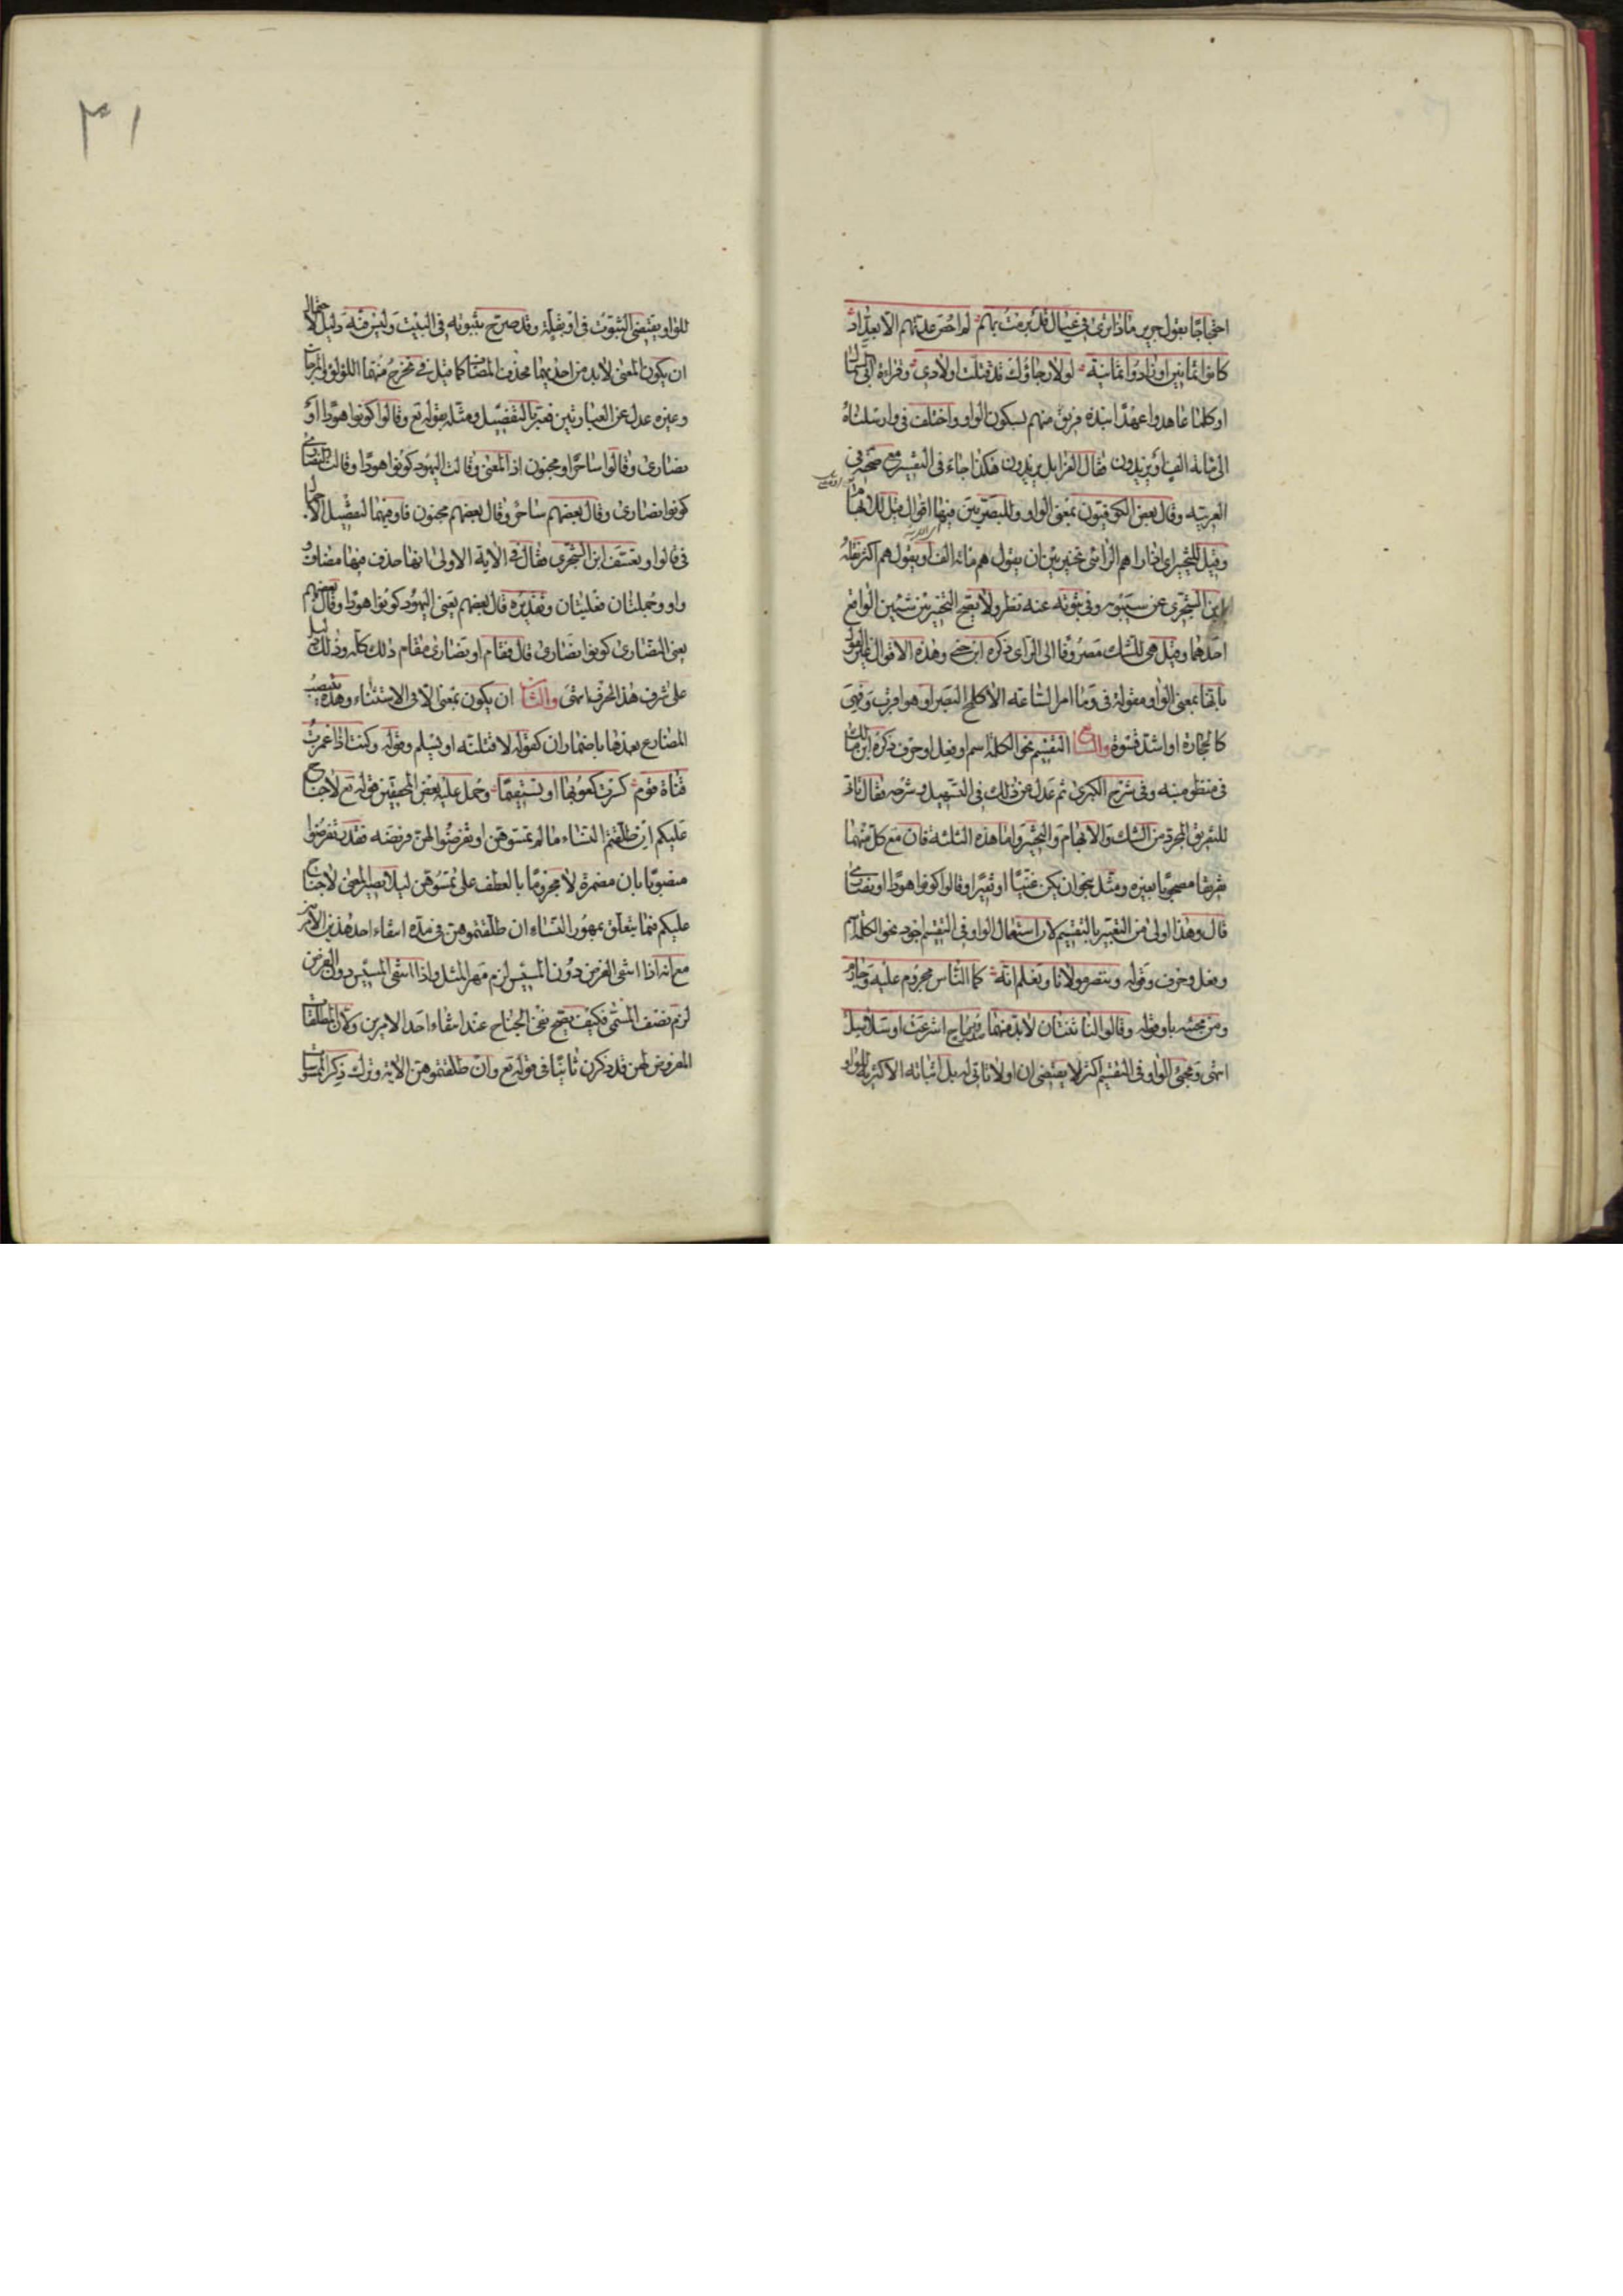 احتجاجًا بقول جرير ماذا ترى فى عيال قد برمت بهم لم احص عدتهم الا بعداد
كانوا ثمانين او زادوا ثمانية لولا رجاؤك قد قتلت اولادى وقراءة ابى السمال
او كلما عاهدوا عهدًا نبذه فريق منهم بسكون الواو واختلف فى وارسلناه
الى مائة الف او يزيدون فقال الفرا بل يزيدون هكذا جاء فى التفسير مع صحته فى
العربية وقال بعض الكوفيون بمعنى الواو وللبصريين فيها اقوال قيل للابهام
وقيل للتخيير اى اذا راهم الرائى تخير بين ان يقول هم مائة الف او يقول هم اكثر نقله
ابن الشجرى عن سيبويه وفى ثبوته عنه نظر ولا يصح التخيير بين شيئين الواقع
احدهما وقيل هى للشك مصروفا الى الرائى ذكره ابن جنى وهذه الاقوال غير القول
بانها بمعنى الواو مقولة فى وما امر الساعة الا كلمح البصر او هو اقرب وفهى
كالحجارة او اشد قسوة والسابع التقسيم نحو الكلمة اسم او فعل او حرف ذكره ابن مالك
فى منظومته وفى شرح الكبرى ثم عدل عن ذلك فى التسهيل وشرحه فقال تاتى
للتفريق المجرد من الشك والابهام والتخيير واما هذه الثلثة فان مع كل منها
تفريقا مصحوبا بغيره ومثل بنحو ان يكن غنيًا او فقيرًا وقالوا كونوا هودًا او نصارى
قال وهذا اولى من التعبير بالتقسيم لان استعمال الواو فى التقسيم اجود نحو الكلمة اسم
وفعل وحرف وقوله وننصر مولانا ونعلم انه كما الناس مجروم عليه وجارم
ومن مجيئه باو قوله وقالوا لنا ثنتان لا بد منهما صدور رماح اشرعت او سلاسل
انتهى ومجئ الواو فى التقسيم اكثر لا يقتضى ان او لا تاتى له بل اثباته الاكثرية للواو
للواو يقتضى الثبوت فى او بقلة وقد صرح بثبوته فى البيت وليس فيه دليل لاحتمال
ان يكون المعنى لا بد من احديهما فحذف المضاف كما قيل فى يخرج منهما اللؤلؤ والمرجان
وغيره عدل عن العبارتين فعبر بالتفصيل ومثله بقوله تع وقالوا كونوا هودًا او
نصارى وقالوا ساحر او مجنون اذ المعنى وقالت اليهود كونوا هودًا وقالت النصارى
كونوا نصارى وقال بعضهم ساحر وقال بعضهم مجنون فاو فيهما لتفصيل الاجمال
فى قالوا وتعسف ابن الشجرى فقال فى الاية الاولى انها حذف منها مضاف و
واو وجملتان فعليتان وتقديره قال بعضهم يعنى اليهود كونوا هودًا وقال بعضهم
يعنى النصارى كونوا نصارى قال فقام او نصارى مقام ذلك كله وذلك دليل
على شرف هذا الحرف انتهى والثامن ان يكون بمعنى الا فى الاستثناء وهذه ينتصب
المضارع بعدها باضمار ان كقوله لاقتلنه او يسلم وقوله وكنت اذا غمزت
قناة قوم كسرت كعوبها او تستقيما وحمل عليه بعض المحققين قوله تع لا جناح
عليكم ان طلقتم النساء ما لم تمسوهن او تفرضوا لهن فريضة فقدر تفرضوا
منصوبًا بان مضمرة لا مجزومًا بالعطف على تمسوهن ليلا يصير المعنى لا جناح
عليكم فيما يتعلق بمهور النساء ان طلقتموهن فى مدة انتفاء احد هذين الامرين
مع انه اذا انتفى الفرض دون المسيس لزم مهر المثل واذا انتفى المسيس دون الفرض
لزم نصف المسمى فكيف يصح نفى الجناح عند انتفاء احد الامرين ولان المطلقات
المفروض لهن قد ذكرن ثانيًا فى قوله تع وان طلقتموهن الاية وترك ذكر الممسوسات
٣١